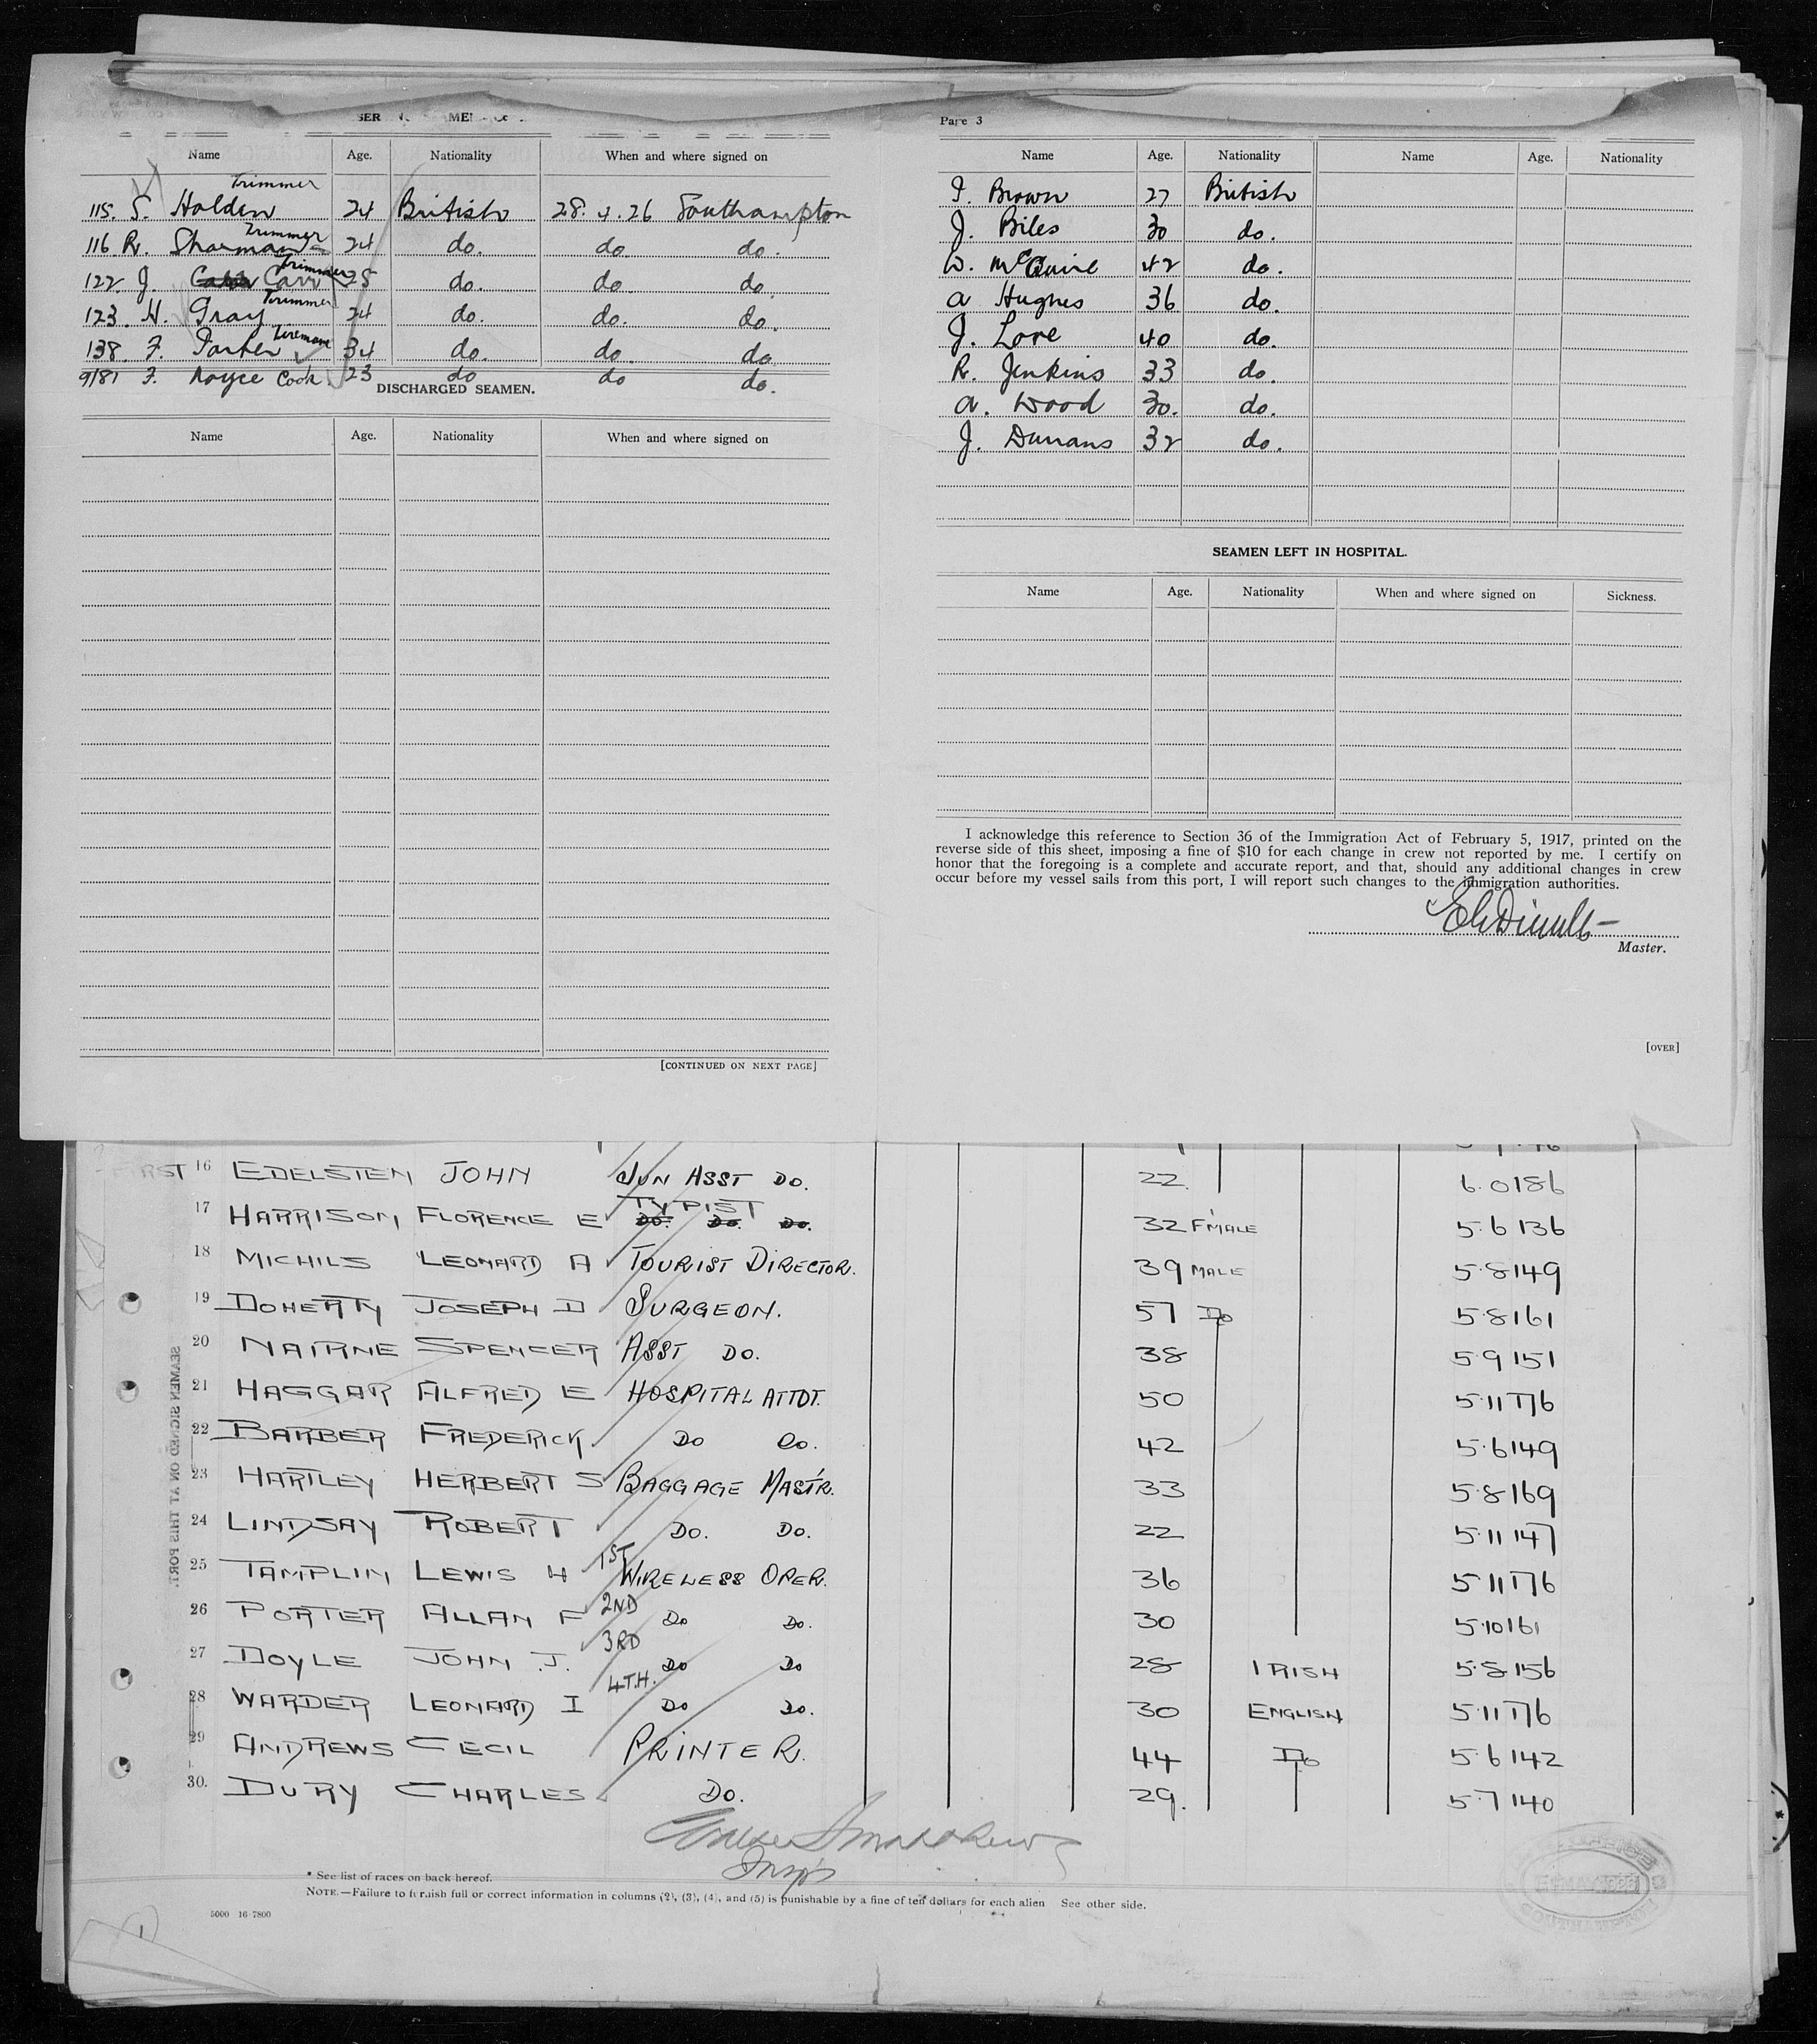 Name Age. Nationality When and where signed on
Trimmer
115. S. Holden 24 British 28.4.26 Southampton
Trimmer
116 R. Sharman 24 do. do. do.
Trimmer
122 J. Carr 25 do. do. do.
Trimmer
123. H. Gray 24 do. do. do.
Fireman
138. F. 34 do. do. do
9/81 F. Royce Cook 23 do do do.
DISCHARGED SEAMEN.
Name Age. Nationality When and where signed on
[CONTINUED ON NEXT PAGE]
Page 3
Name Age. Nationality Name Age. Nationality
Brown 27 British
J. Biles 30 do.
W. McGuire 42 do.
A Hughes 36 do.
J. Lore 40 do.
R. Jenkins 33 do.
A. Wood 30. do.
J. Durrans 32 do.
SEAMEN LEFT IN HOSPITAL.
Name Age. Nationality When and where signed on Sickness.
I acknowledge this reference to Section 36 of the Immigration Act of February 5, 1917, printed on the
reverse side of this sheet, imposing a fine of $10 for each change in crew not reported by me. I certify on
honor that the foregoing is a complete and accurate report, and that, should any additional changes in crew
occur before my vessel sails from this port, I will report such changes to the immigration authorities.
Master.
[OVER]
16 EDELSTEN JOHN JUN ASST DO. 22. 6.0 186
TYPIST
17 HARRISON FLORENCE E DO. DO. DO. 32 F'MALE 5.6 136
18 MICHILS LEONARD A TOURIST DIRECTOR. 39 MALE 5.8 149
19 DOHERTY JOSEPH D SURGEON. 57 DO 5.8 161
20 NAIRNE SPENCER ASST DO. 38 5.9 151
21 HAGGAR ALFRED E HOSPITAL ATTDT. 50 5.11 176
22 BARBER FREDERICK DO DO. 42 5.6 149
23 HARTLEY HERBERT S BAGGAGE MAST'R. 33 5.8 169
24 LINDSAY ROBERT DO. DO. 22 5.11 147
25 TAMPLIN LEWIS H 1ST WIRELESS OPER. 36 5.11 176
26 PORTER ALLAN F 2ND DO DO. 30 5.10 161
27 DOYLE JOHN J. 3RD DO DO 28 IRISH 5.8 156
28 WARDER LEONARD I 4TH. DO DO. 30 ENGLISH 5.11 176
29 ANDREWS CECIL PRINTER. 44 DO 5.6 142
30. DURY CHARLES DO. 29. 5.7 140
* See list of races on back hereof.
NOTE.—Failure to furnish full or correct information in columns (2), (3), (4), and (5) is punishable by a fine of ten dollars for each alien See other side.
5000 16-7800
SEAMEN SIGNED ON AT THIS PORT.